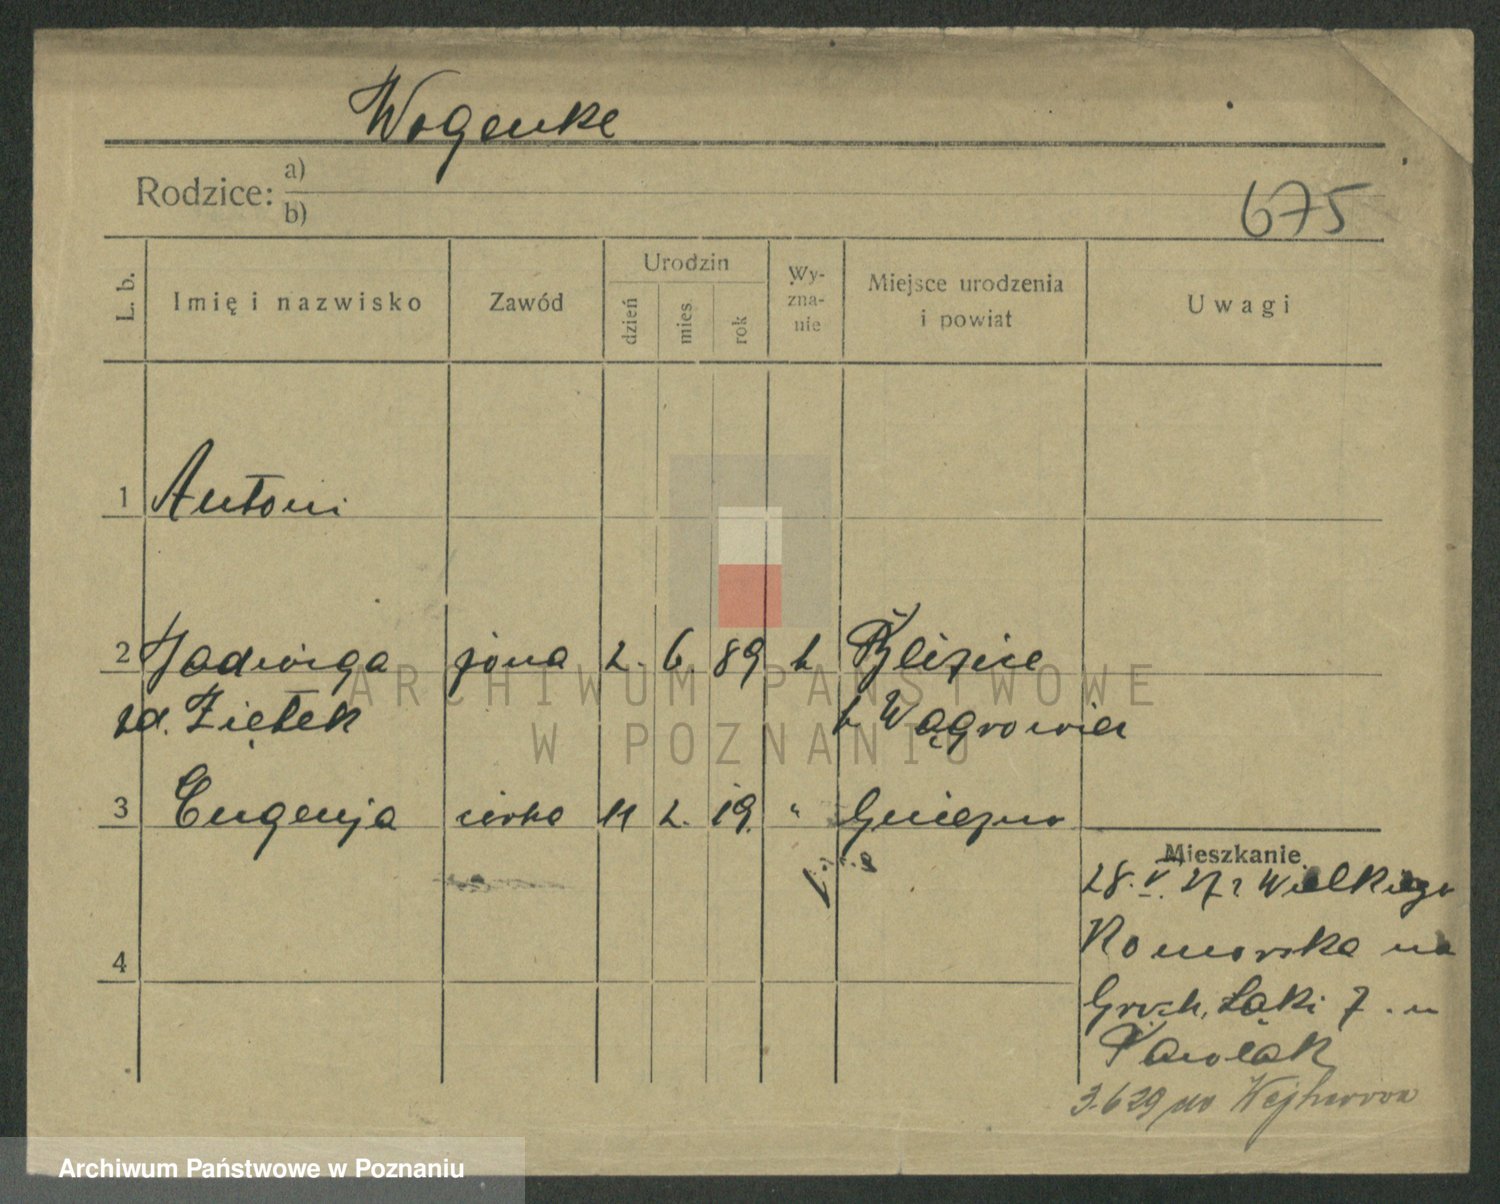 Wogenke
Rodzice: a)
b)
675
L. b. Imię i nazwisko Zawód Urodzin dzień mies. rok Wyznanie Miejsce urodzenia i powiat Uwagi
1 Antoni
2 Jadwiga żona 2. 6. 89 k
zd. Ziętek p. Wągrowiec
3 Eugenja córka 11 2. 19. " Gniezno
Mieszkanie
28. V. 27 z Wielkiego
Komorska na
Groch. Łąki 7. u
Pawlak
3.6 29 do Wejherowa
4
ARCHIWUM PAŃSTWOWE
W POZNANIU
Archiwum Państwowe w Poznaniu